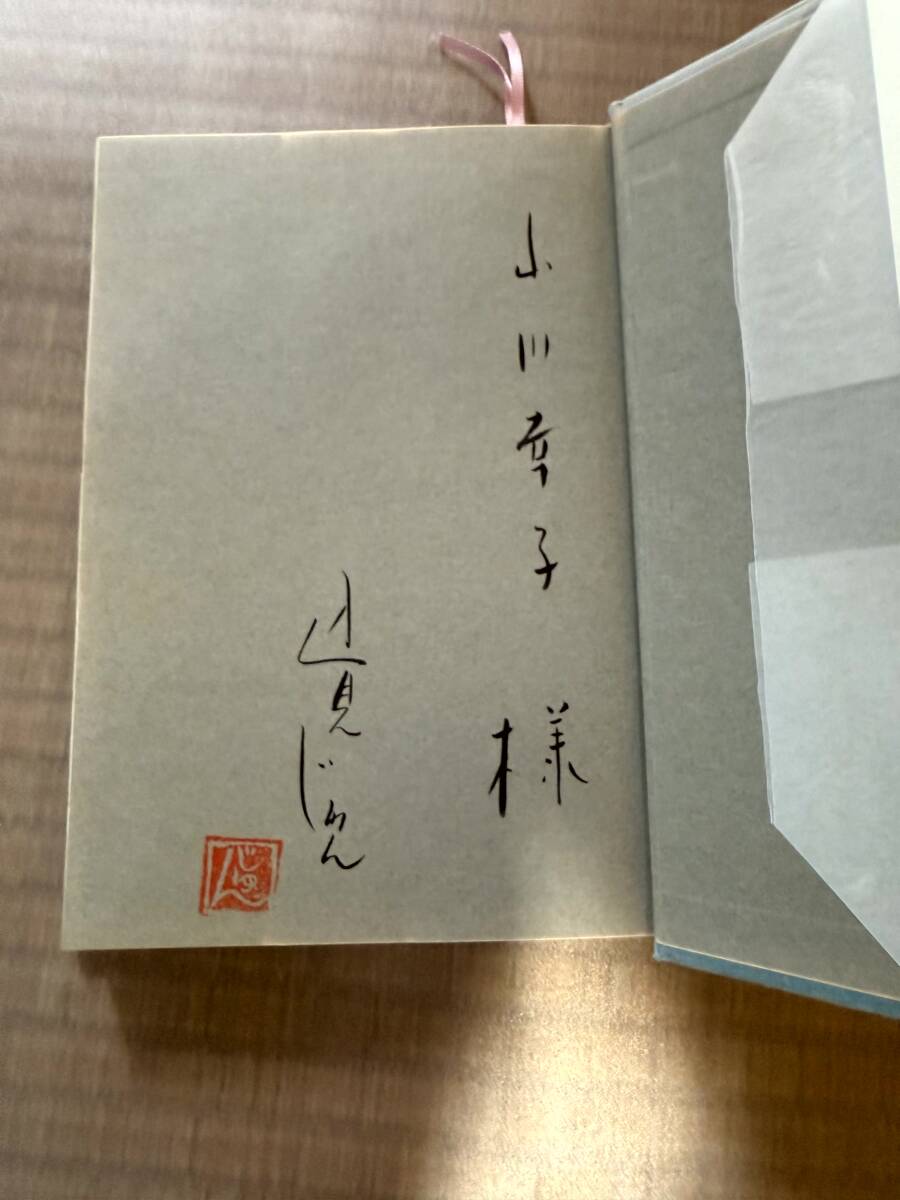 小川幸子様
辺見じゅん
じゅん